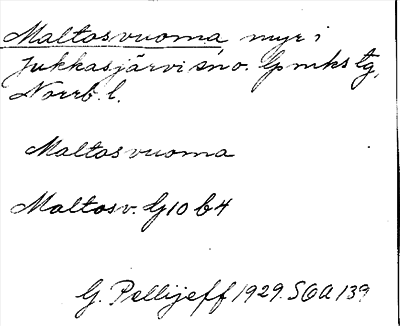 Maltosvuoma myr i
Jukkasjärvi sn o. lpmks tg,
Norrb. l.
Maltosvuoma
Maltosv. G10 b4
G. Pellijeff 1929. SOA 139